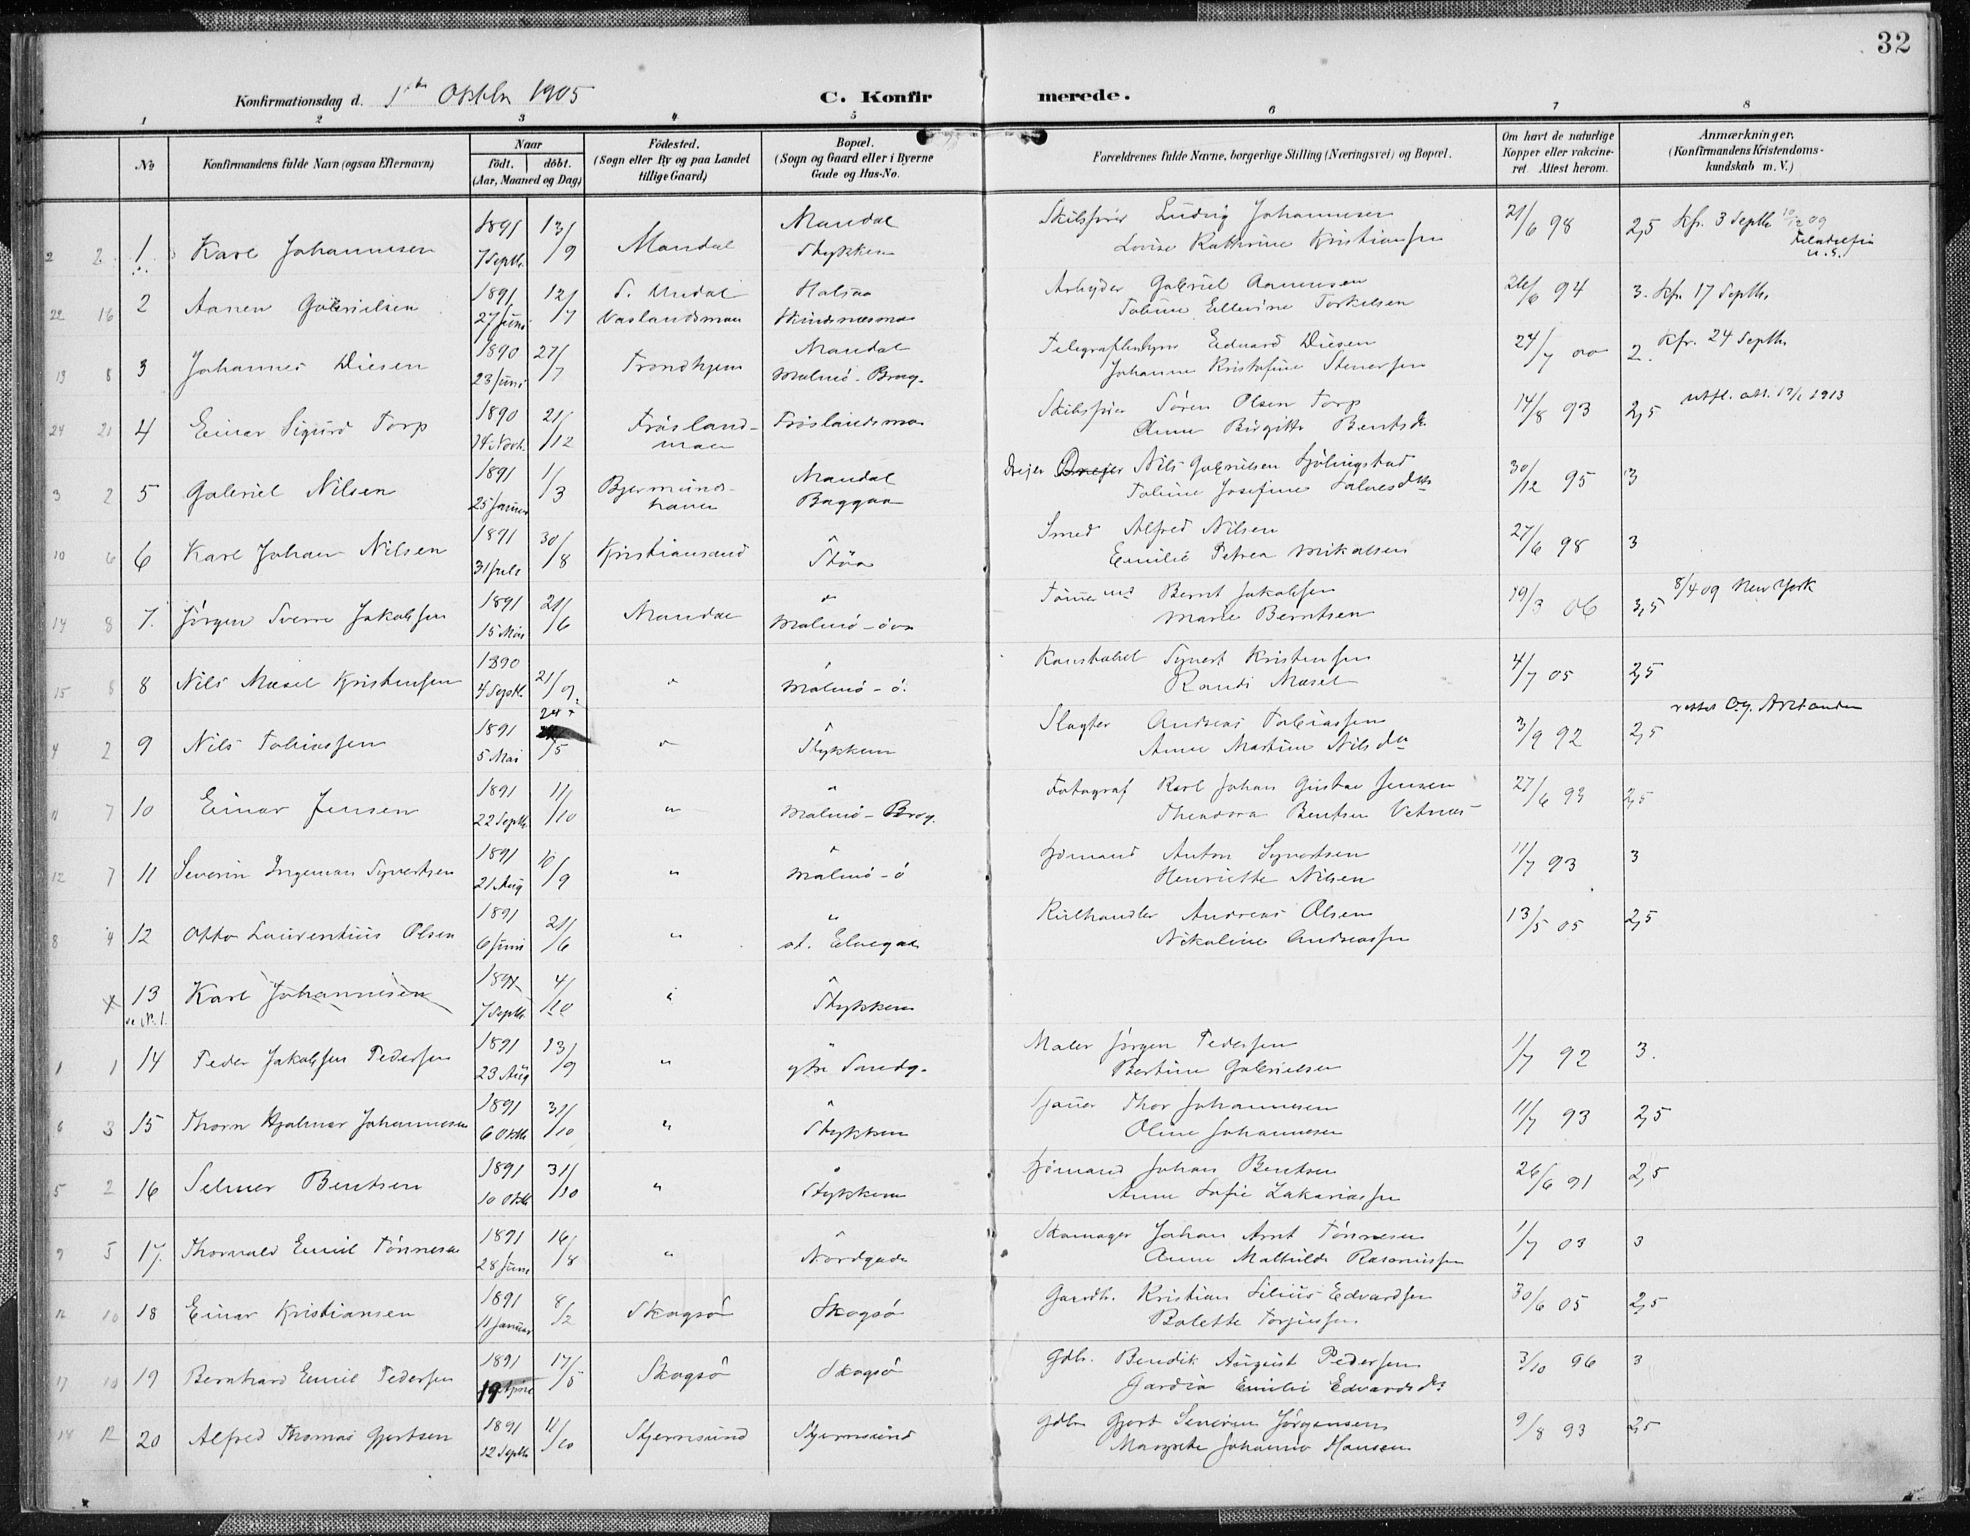 32
Konfirmationsdag d. 1ste Oktbr 1905 C. Konfir merede.
1 2 3 4 5 6 7 8
No
Konfirmandens fulde Navn (ogsaa Efternavn)
Naar
født. døbt.
(Aar, Maaned og Dag)
Fødested.
(Sogn eller By og paa Landet
tillige Gaard)
Bopæl.
(Sogn og Gaard eller i Byerne
Gade og Hus-No.
Forældrenes fulde Navne, borgerlige Stilling (Næringsvei) og Bopæl.
Om havt de naturlige
Kopper eller vakcine-
ret Attest herom.
Anmærkninger.
(Konfirmandens Kristendoms-
kundskab m. V.)
1891 13/9 Mandal Skibsfører Ludvig Johannesen 21/6 98 2,5 kfr. 3 Septb.
2 2 1. Karl Johannesen 7 Septb. Mandal Stykkene Lovise Kathrine Kristiansen
1891 12/7 S. Undal Halsaa Arbeider Gabriel Aanensen 26/6 94 3. kfr. 17 Septb.
22 16 2 Aanen Gabrielsen 27 Juni Vaslandsmoen Tobine Ellevine Torkelsen
1890 27/7 Mandal Eduard Diesen 24/7 00 2. kfr. 24 Septb.
13 8 3 Johannes Diesen 23 Juni Trondhjem Malmø-Brog. Johanne Kristofine Stenersen
1890 21/12 Frøsland- Frøslandsmoen Skibsfører Søren Olsen Torp 14/8 93 2,5 1913
24 21 4 Einar Sigurd Torp 14 Novb. moen Anne Birgitte Bentsdr.
1891 1/3 Mandal Drejer Drejer Nils Gabrielsen 30/12 95 3
3 2 5 Gabriel Nilsen 25 Januar Baggaa Tobine Josefine
1891 30/8 Kristianssand " Smed Alfred Nilsen 27/6 98 3
10 6 6 Karl Johan Nilsen 31 Juli Støa Emilie Petrea Mikalsen
1891 21/6 Mandal " Tømmermd Bernt Jakobsen 19/3 06 3,5 8/4 09 New York
14 8 7. Jørgen Sverre Jakobsen 15 Mai Malmø-øen Marie Berntsen
1890 21/9 " " Konstabel Syvert Kristensen 4/7 05 2,5
15 8 8 Nils Mæsel Kristensen 4 Septb. Malmø-ø. Randi Mæsel
1891 24/5 " " Slagter Andreas Tobiassen 3/9 92 2,5
4 2 9 Nils Tobiassen 5 Mai Stykkene Anne Martine Nilsdr
1891 11/10 " " Fotograf Karl Johan Gustav Jensen 27/6 93 2,5
7 10 Einar Jensen 22 Septb. Malmø-Brog. Theodora Bentsen Vetnes
1891 10/9 " " Sømand Anton Syvertsen 11/7 93 3
12 7 11 Severin Ingeman Syvertsen 21 Aug Malmø-ø Henriette Nilsen
1891 21/6 " " Andreas Olsen 13/5 05 2,5
8 4 12 Otto Laurentius Olsen 6 Juni st. Elvegd Nikoline Andreassen
1891 4/10 " "
x 13 Karl Johannesen 7 Septb. Stykkene
se No. 1.
1891 13/9 " " Maler Jørgen Pedersen 1/7 92 3.
1 1 14 Peder Jakobsen Pedersen 23 Aug ytre Sandg. Bertine Gabrielsen
1891 31/10 " " Sjauer Thor Johannesen 11/7 93 2,5
6 3 15 Thorn Hjalmar Johannesen 6 Oktb Stykkene Oline Johannesen
1891 31/10 " " Sømand Johan Bentsen 26/6 91 2,5
5 2 16 Selmer Bentsen 10 Oktb Stykkene Anne Sofie Zakariassen
1891 16/8 " " Skomager Johan Arnt Tønnesen 1/7 03 3
9 5 17. Thorvald Emil Tønnesen 28 Juni Nordgade Anne Mathilde Rasmussen
1891 8/2 Skogsø Skogsø Gaardb. Kristian Silius Edvardsen 30/6 05 2,5
10 18 Einar Kristiansen 11 Januar Bolette Torjussen
1891 17/5 Skogsø Skogsø Gdb. Bendik August Pedersen 3/10 96 3
17 10 19 Bernhard Emil Pedersen 19 April Emilie Edvardsdr
1891 11/10 Stjernsund Stjernsund Gdbr Gjert Severin Jørgensen 9/8 93 2,5
18 12 20 Alfred Thomas Gjertsen 12 Septb Margrete Johanne Hansen